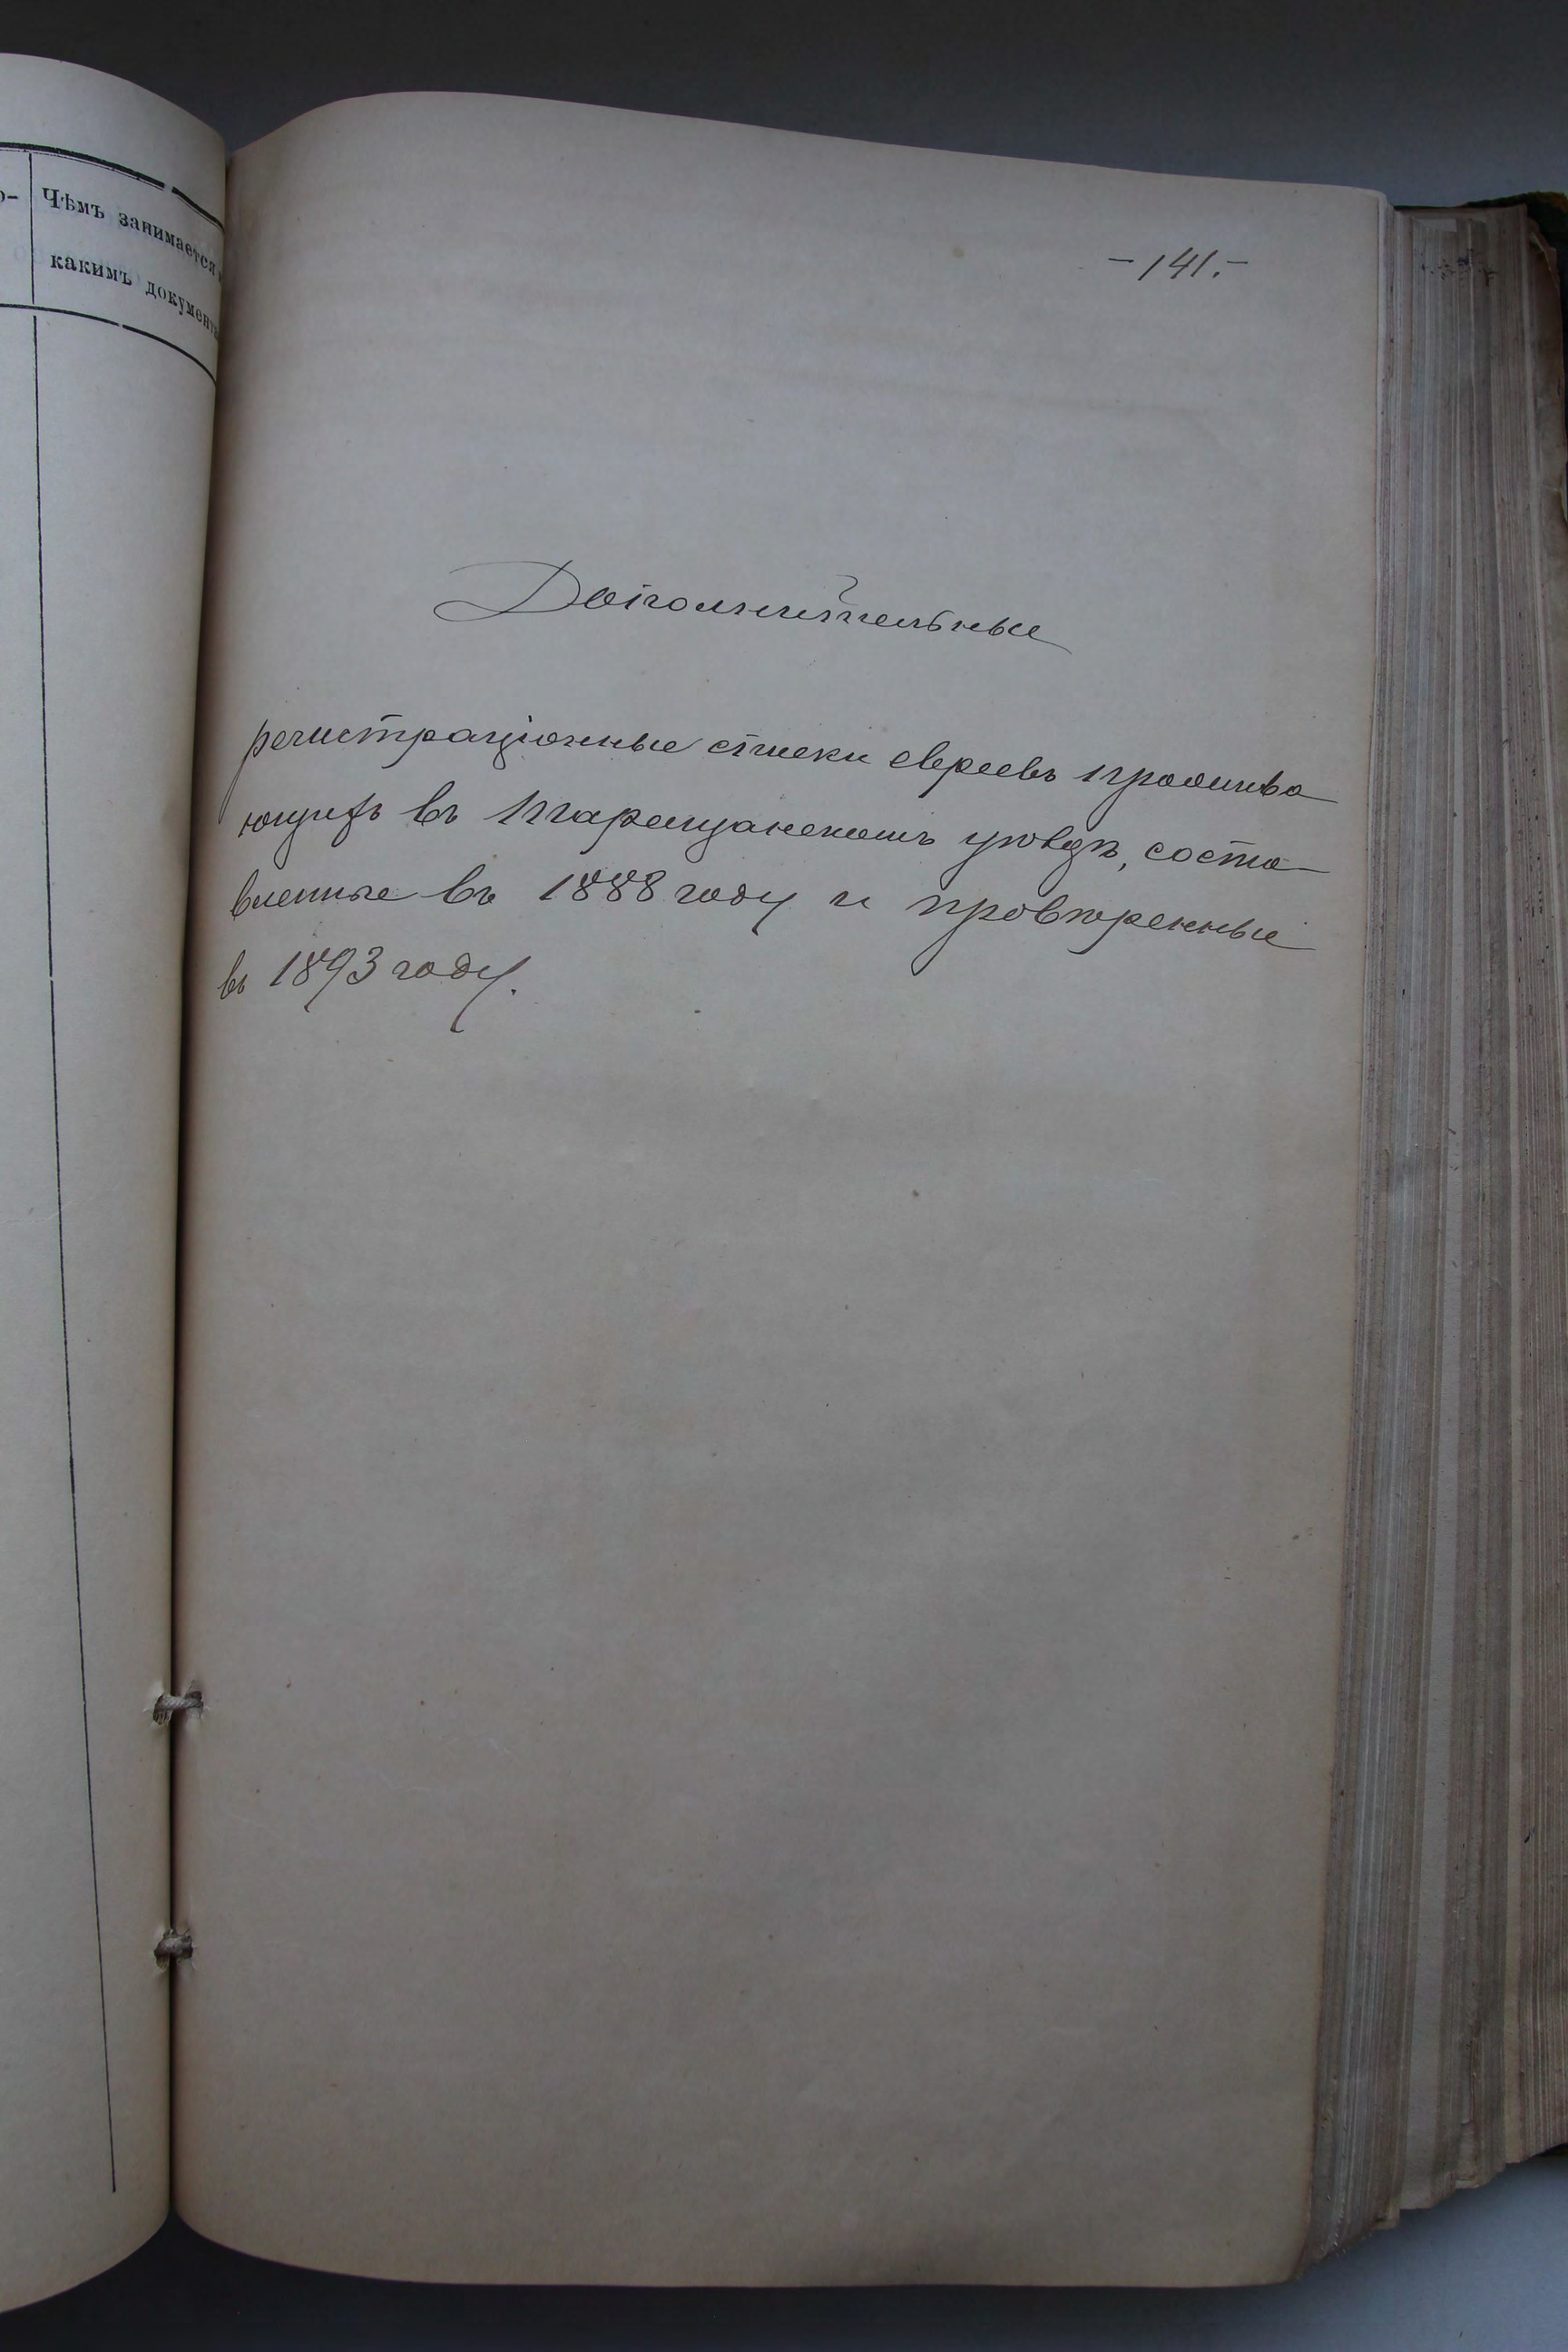 Чѣмъ занимается
какимъ документ
-141.-
Дополнительные
регистраціонные списки евреевъ прожива
ющихъ въ Таращанскомъ уѣздѣ, соста-
вленные въ 1888 году и провѣренные
въ 1893 году.